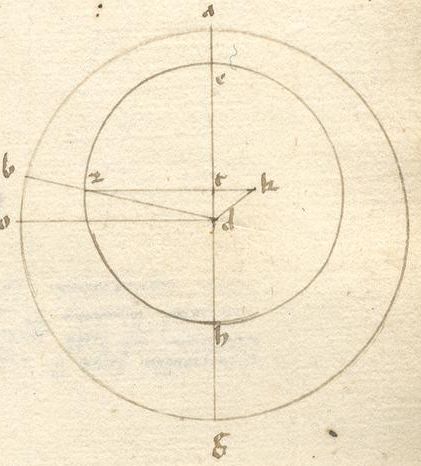 a
e
b
z
t
k
o
d
h
g